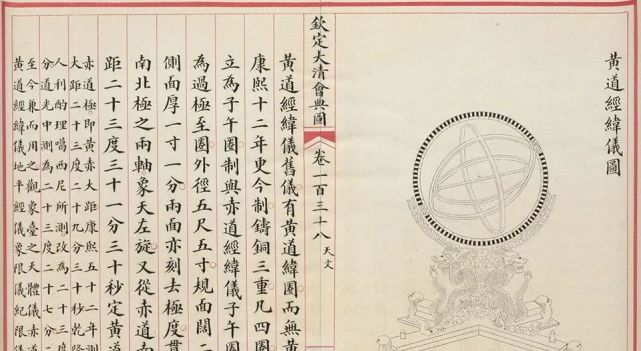 黃道經緯儀圖
欽定大清會典圖
卷一百三十八 天文
黃道經緯儀舊儀有黃道經緯圈而無黃
康熙十二年更今制鑄銅三重凡四圈
立為子午圈制與赤道經緯儀子午圈
為過極至圈外徑五尺五寸規面闊二
側面厚一寸一分兩面亦刻去極度貫
南北極之兩軸象天左旋又從赤道南
距二十三度三十一分三十秒定黃道
赤道極即黃赤大距康熙五十二年測
大距二十三度二十九分三十秒乾隆
人利酌理噶西尼所測改為二十三度
分道光中測為二十三度二十七分
至今兼而用之觀象臺之天體儀赤道
黃道經緯儀地平經儀象限儀紀限儀